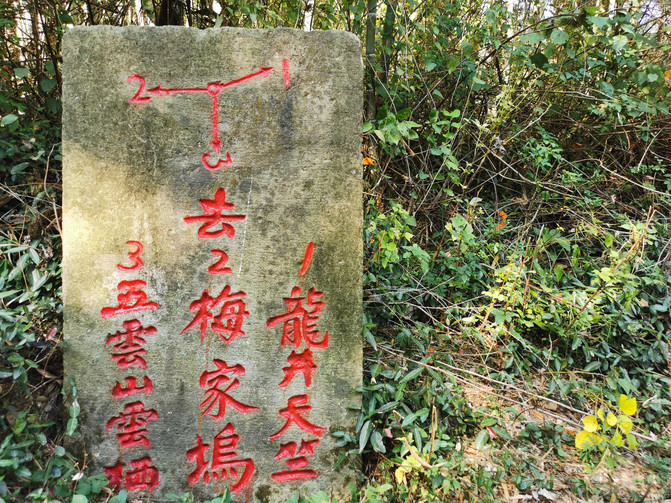 2 1
3
去
1龍井天竺
2梅家塢
3五雲山雲栖